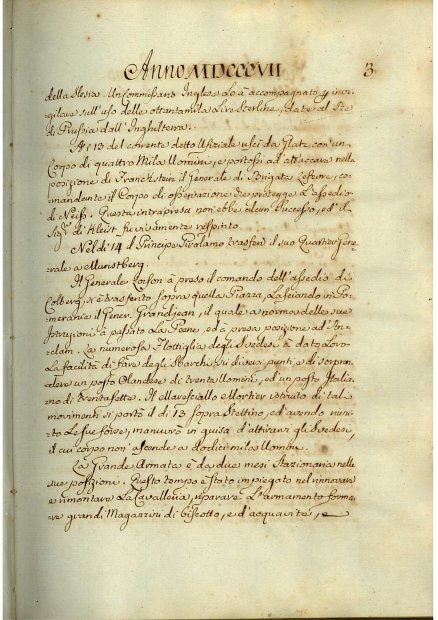 Anno MDCCCVII 3
della Slesia. Un Commissario Inglese Lo à accompagnato p invi-
gilare sull'uso delle ottantamila Live Sterline, date al Re
di Prussia dall'Inghilterra.
A' 13 del corrente detto Uffiziale uscì da Glatz con un
Corpo di quattro Mila Uomini, e portossi ad attaccare nella
posizione di Franckstein il Generale di Brigata Lefevre, co-
mandante il Corpo di osservazione che protegge L'assedio
di Neiss. Questa intrapresa non ebbe alcun Successo, ed il
Sigr di Kleist fu vivamente respinto.
Nel dì 14 il Principe Girolamo trasferì il suo Quartier Gene-
rale a Munstberg.
Il Generale Loison à preso il comando dell'assedio di
Colberg, s'è trasferito sopra quella Piazza, Lasciando in Po-
merania il Gener. Grandjean, il quale a norma delle sue
Istruzioni à passato La Peene, ed à presa posizione ad An-
clam. La numerosa Flottiglia degli Svedesi à dato Loro
La facilità di fare degli Sbarchi su diversi punti, e di sorpren-
dere un posto Olandese di trenta Uomini, ed un posto Italia-
no di trentasette. Il Maresciallo Mortier istruito di tal
movimenti si portò il dì 13 sopra Stettino, ed avendo riuni-
to Le sue forze, manuvrò in guisa d'attirarsi gli Svedesi,
il cui corpo non ascende a dodici mila Uomini.
La Grande Armata è da due mesi Stazionaria nelle
sue posizioni. Questo tempo è stato impiegato nel rinnovare
e rimontare La Cavalleria, riparare L'armamento forma-
re grandi Magazzini di biscotto, e d'acquavite, e